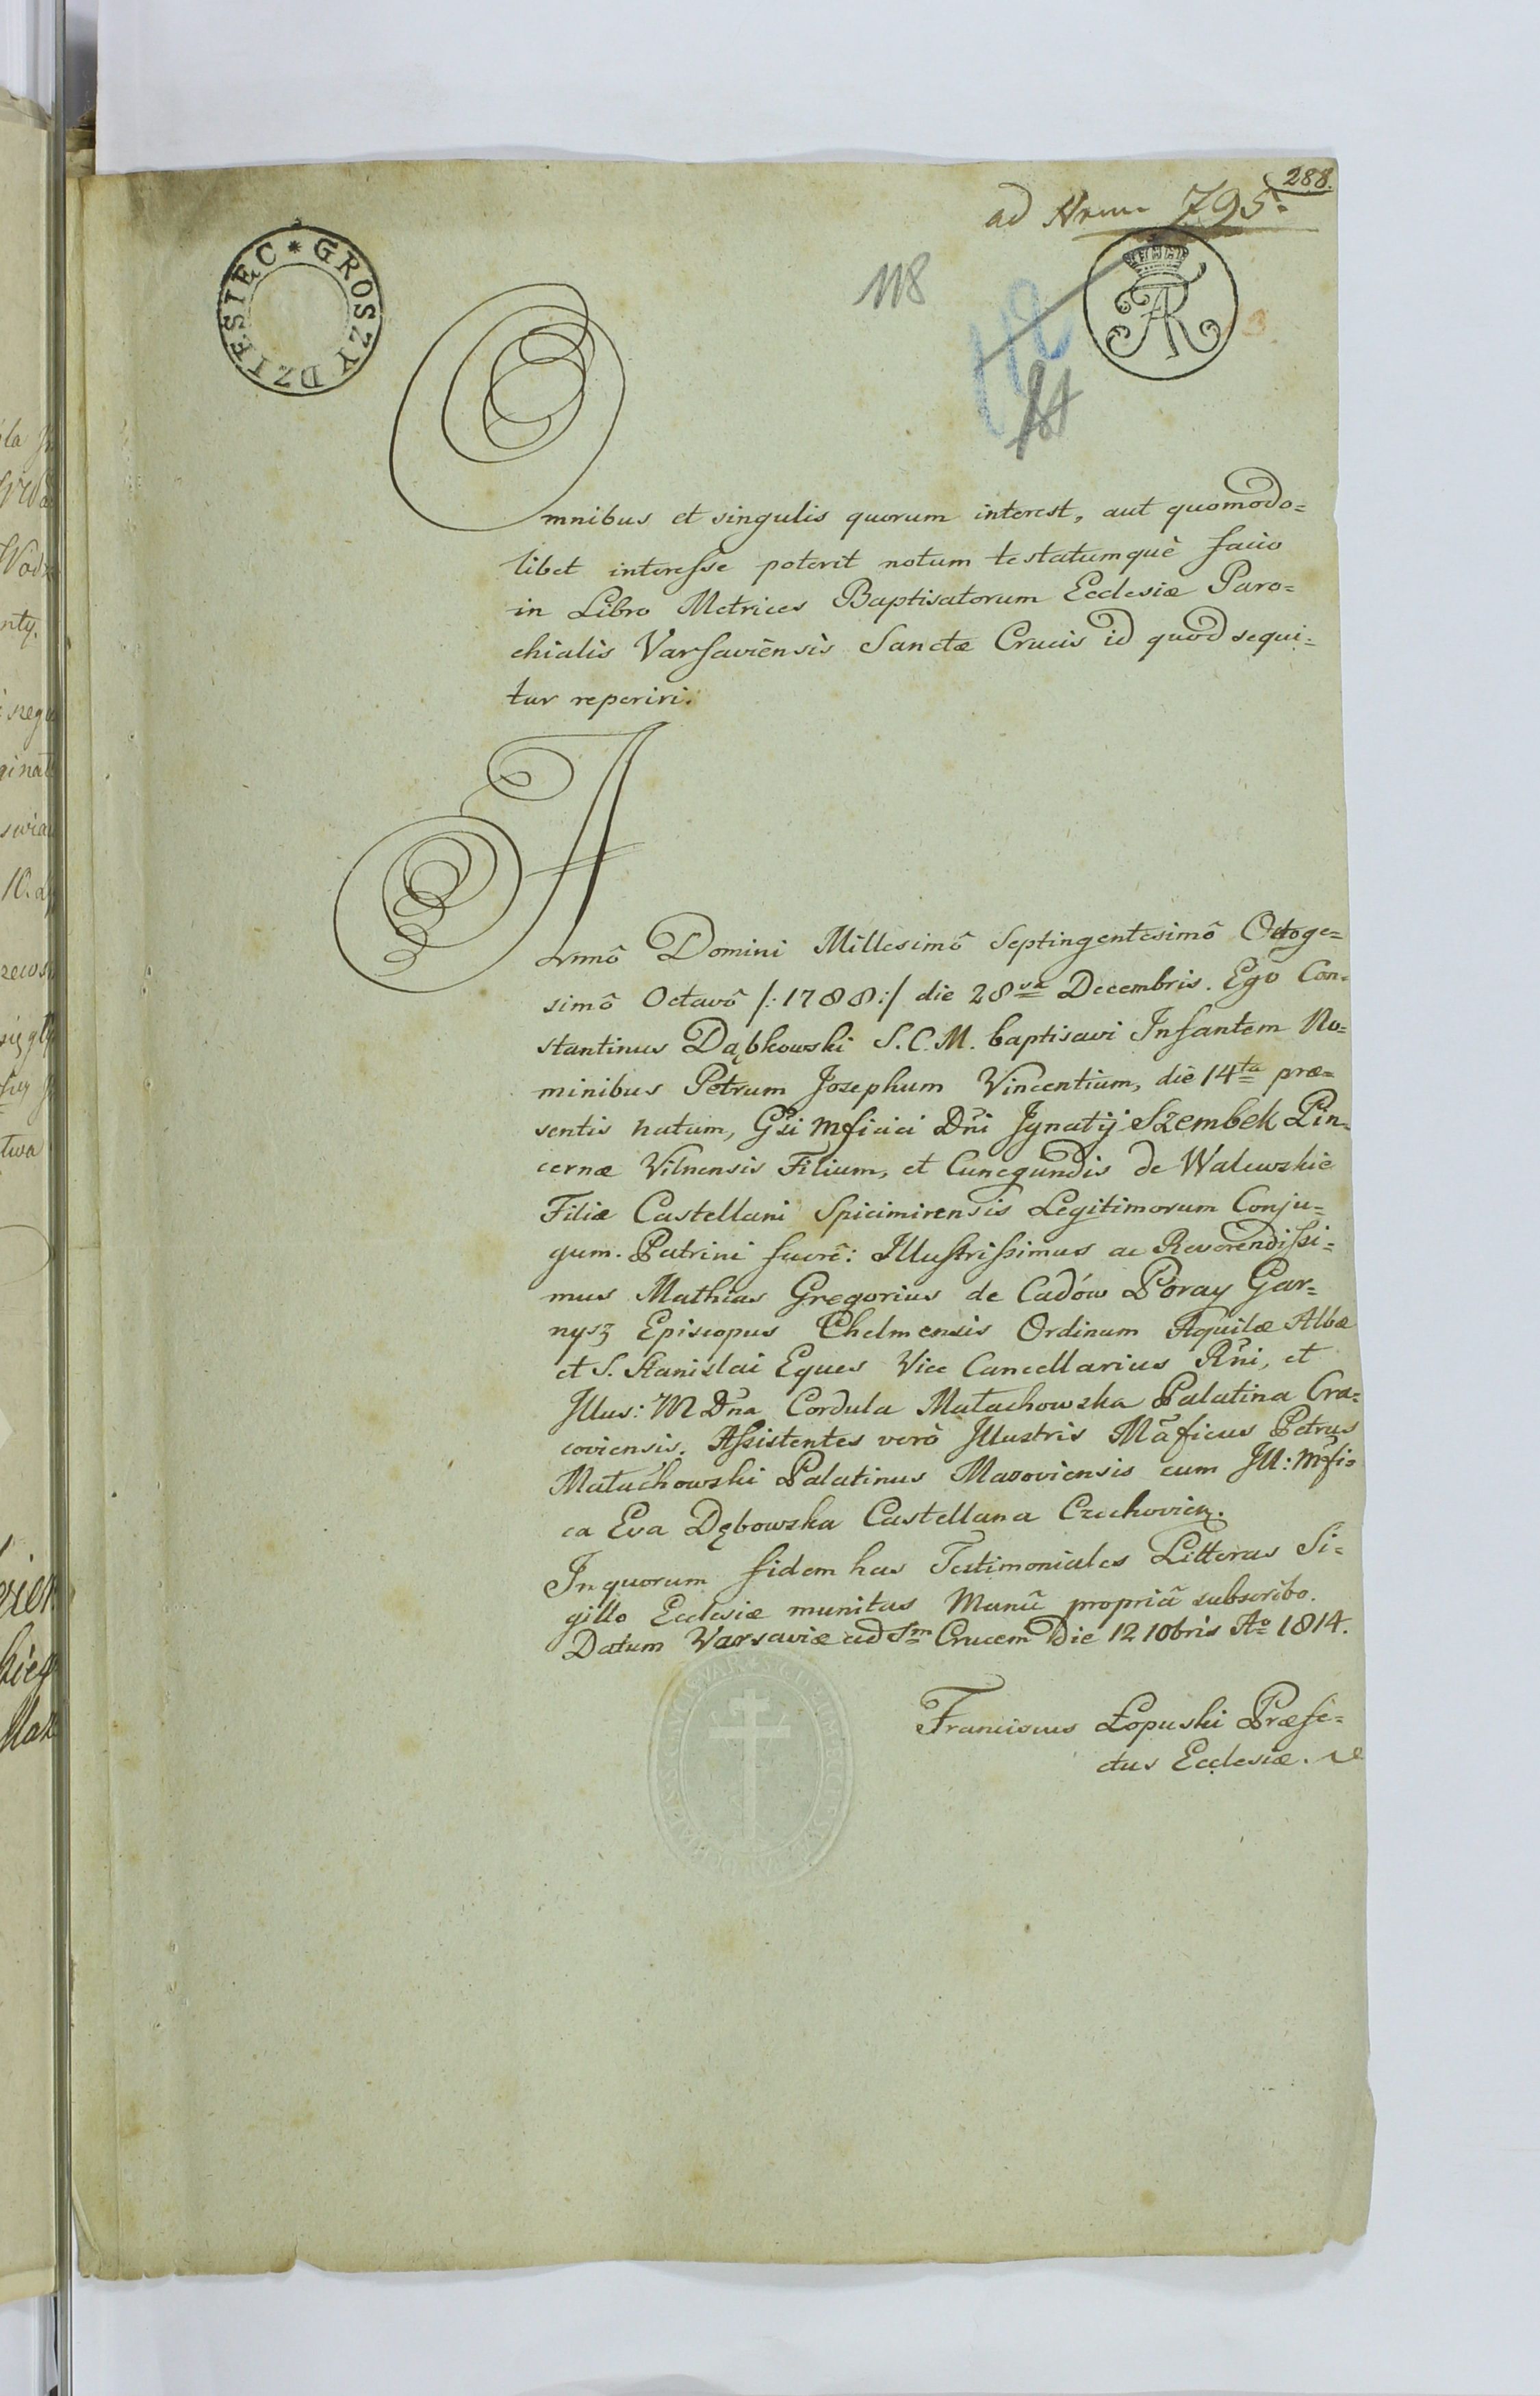 288.
ad Nrum 795.
GROSZY DZIESIEC *
118
Omnibus et singulis quorum interest, aut quomodo=
libet interesse poterit notum testatumquè facio
in Libro Metrices Baptisatorum Ecclesiæ Paro=
chialis Varsaviensis Sanctæ Crucis id quod sequi=
tur reperiri.
Annô Domini Millesimô Septingentesimô Octoge=
simô Octavô /:1788:/ die 28va Decembris. Ego Con=
stantinus Dąbkowski S.C.M. baptisavi Infantem No=
minibus Petrum Josephum Vincentium, die 14ta præ=
sentis natum, Gsi Mficici Dni Jgnatij Szembek Pin=
cernæ Vilnensis Filium, et Cunegundis de Walewskie
Filiæ Castellani Spicimirensis Legitimorum Conju=
gum. Patrini fuerê: Illustrissimus ac Reverendissi=
mus Mathias Gregorius de Cadów Poray Gar=
nysz Episcopus Chelmensis Ordinum Aquilæ Albæ
et S. Stanislai Eques Vice Cancellarius Rni, et
Jllus: M Dna Cordula Małachowska Palatina Cra=
coviensis. Assistentes verò Jllustris Mãficus Petrus
Małachowski Palatinus Masoviensis cum Jll: Mfi=
ca Eva Dębowska Castellana Czechovien.
In quorum fidem has Testimoniales Litteras Si=
gillo Ecclesiæ munitas Manû propriâ subscribo.
Datum Varsaviæ ad Sm Crucem Die 12 10bris Ao 1814.
Franciscus Łopuski Præfe=
ctus Ecclesiæ.